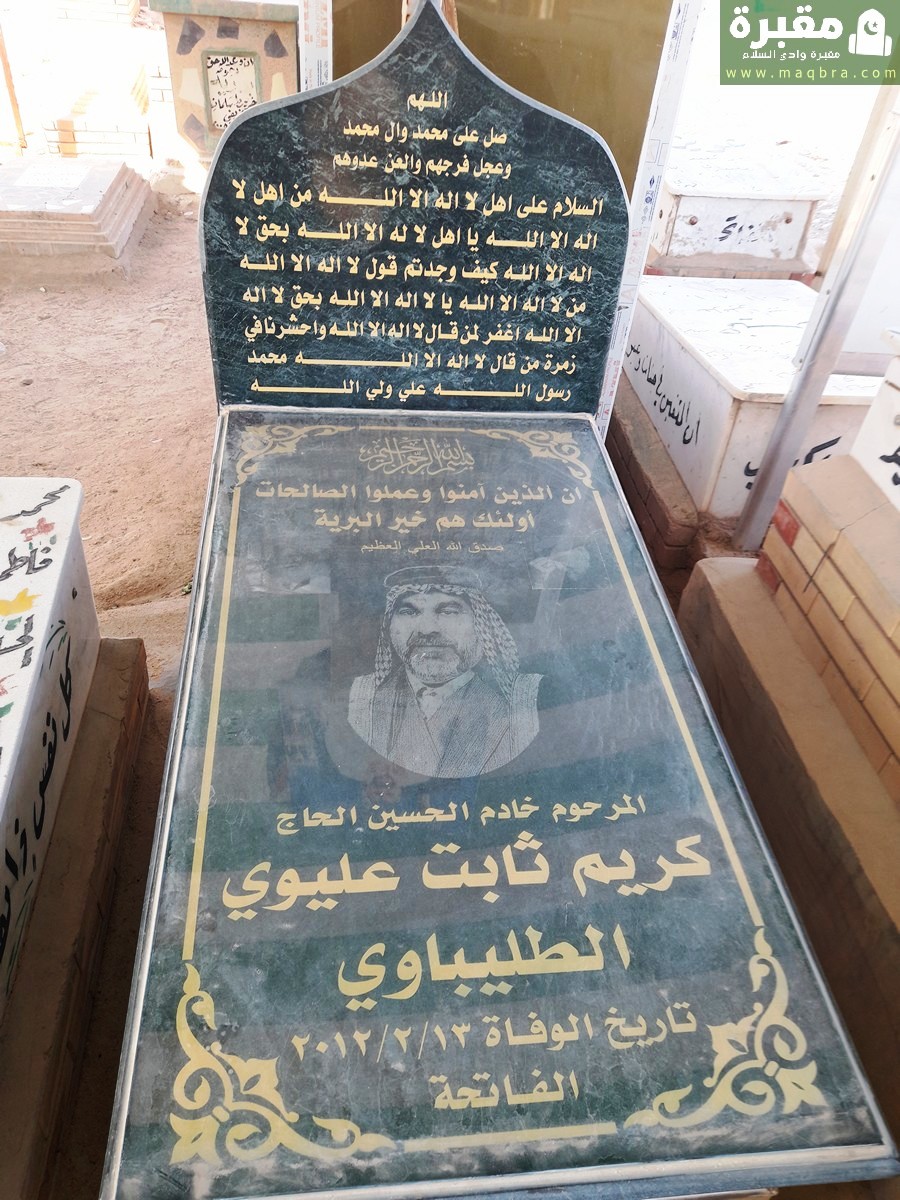 مقبرة
مقبرة وادي السلام
www.maqbra.com
اللهم
صل على محمد وال محمد
وعجل فرجهم والعن عدوهم
السلام على اهل لا اله الا اللـــــه من اهل لا
اله الا اللـــه يا اهل لا له الا اللـــه بحق لا
اله الا اللـه كيف وجدتم قول لا اله الا اللـه
من لا اله الا اللـه يا لا اله الا اللـه بحق لا اله
الا اللـه اغفر لمن قال لا اله الا اللـه واحشرنا في
زمرة من قال لا اله الا اللـــــــه محمد
رسول اللـــــه علي ولي اللـــــه
بسم الله الرحمن الرحيم
ان الذين آمنوا وعملوا الصالحات
أولئك هم خير البرية
صدق الله العلي العظيم
المرحوم خادم الحسين الحاج
كريم ثابت عليوي
الطليباوي
تاريخ الوفاة ٢٠١٢/٢/١٣
الفاتحة
محمد
كل نفس